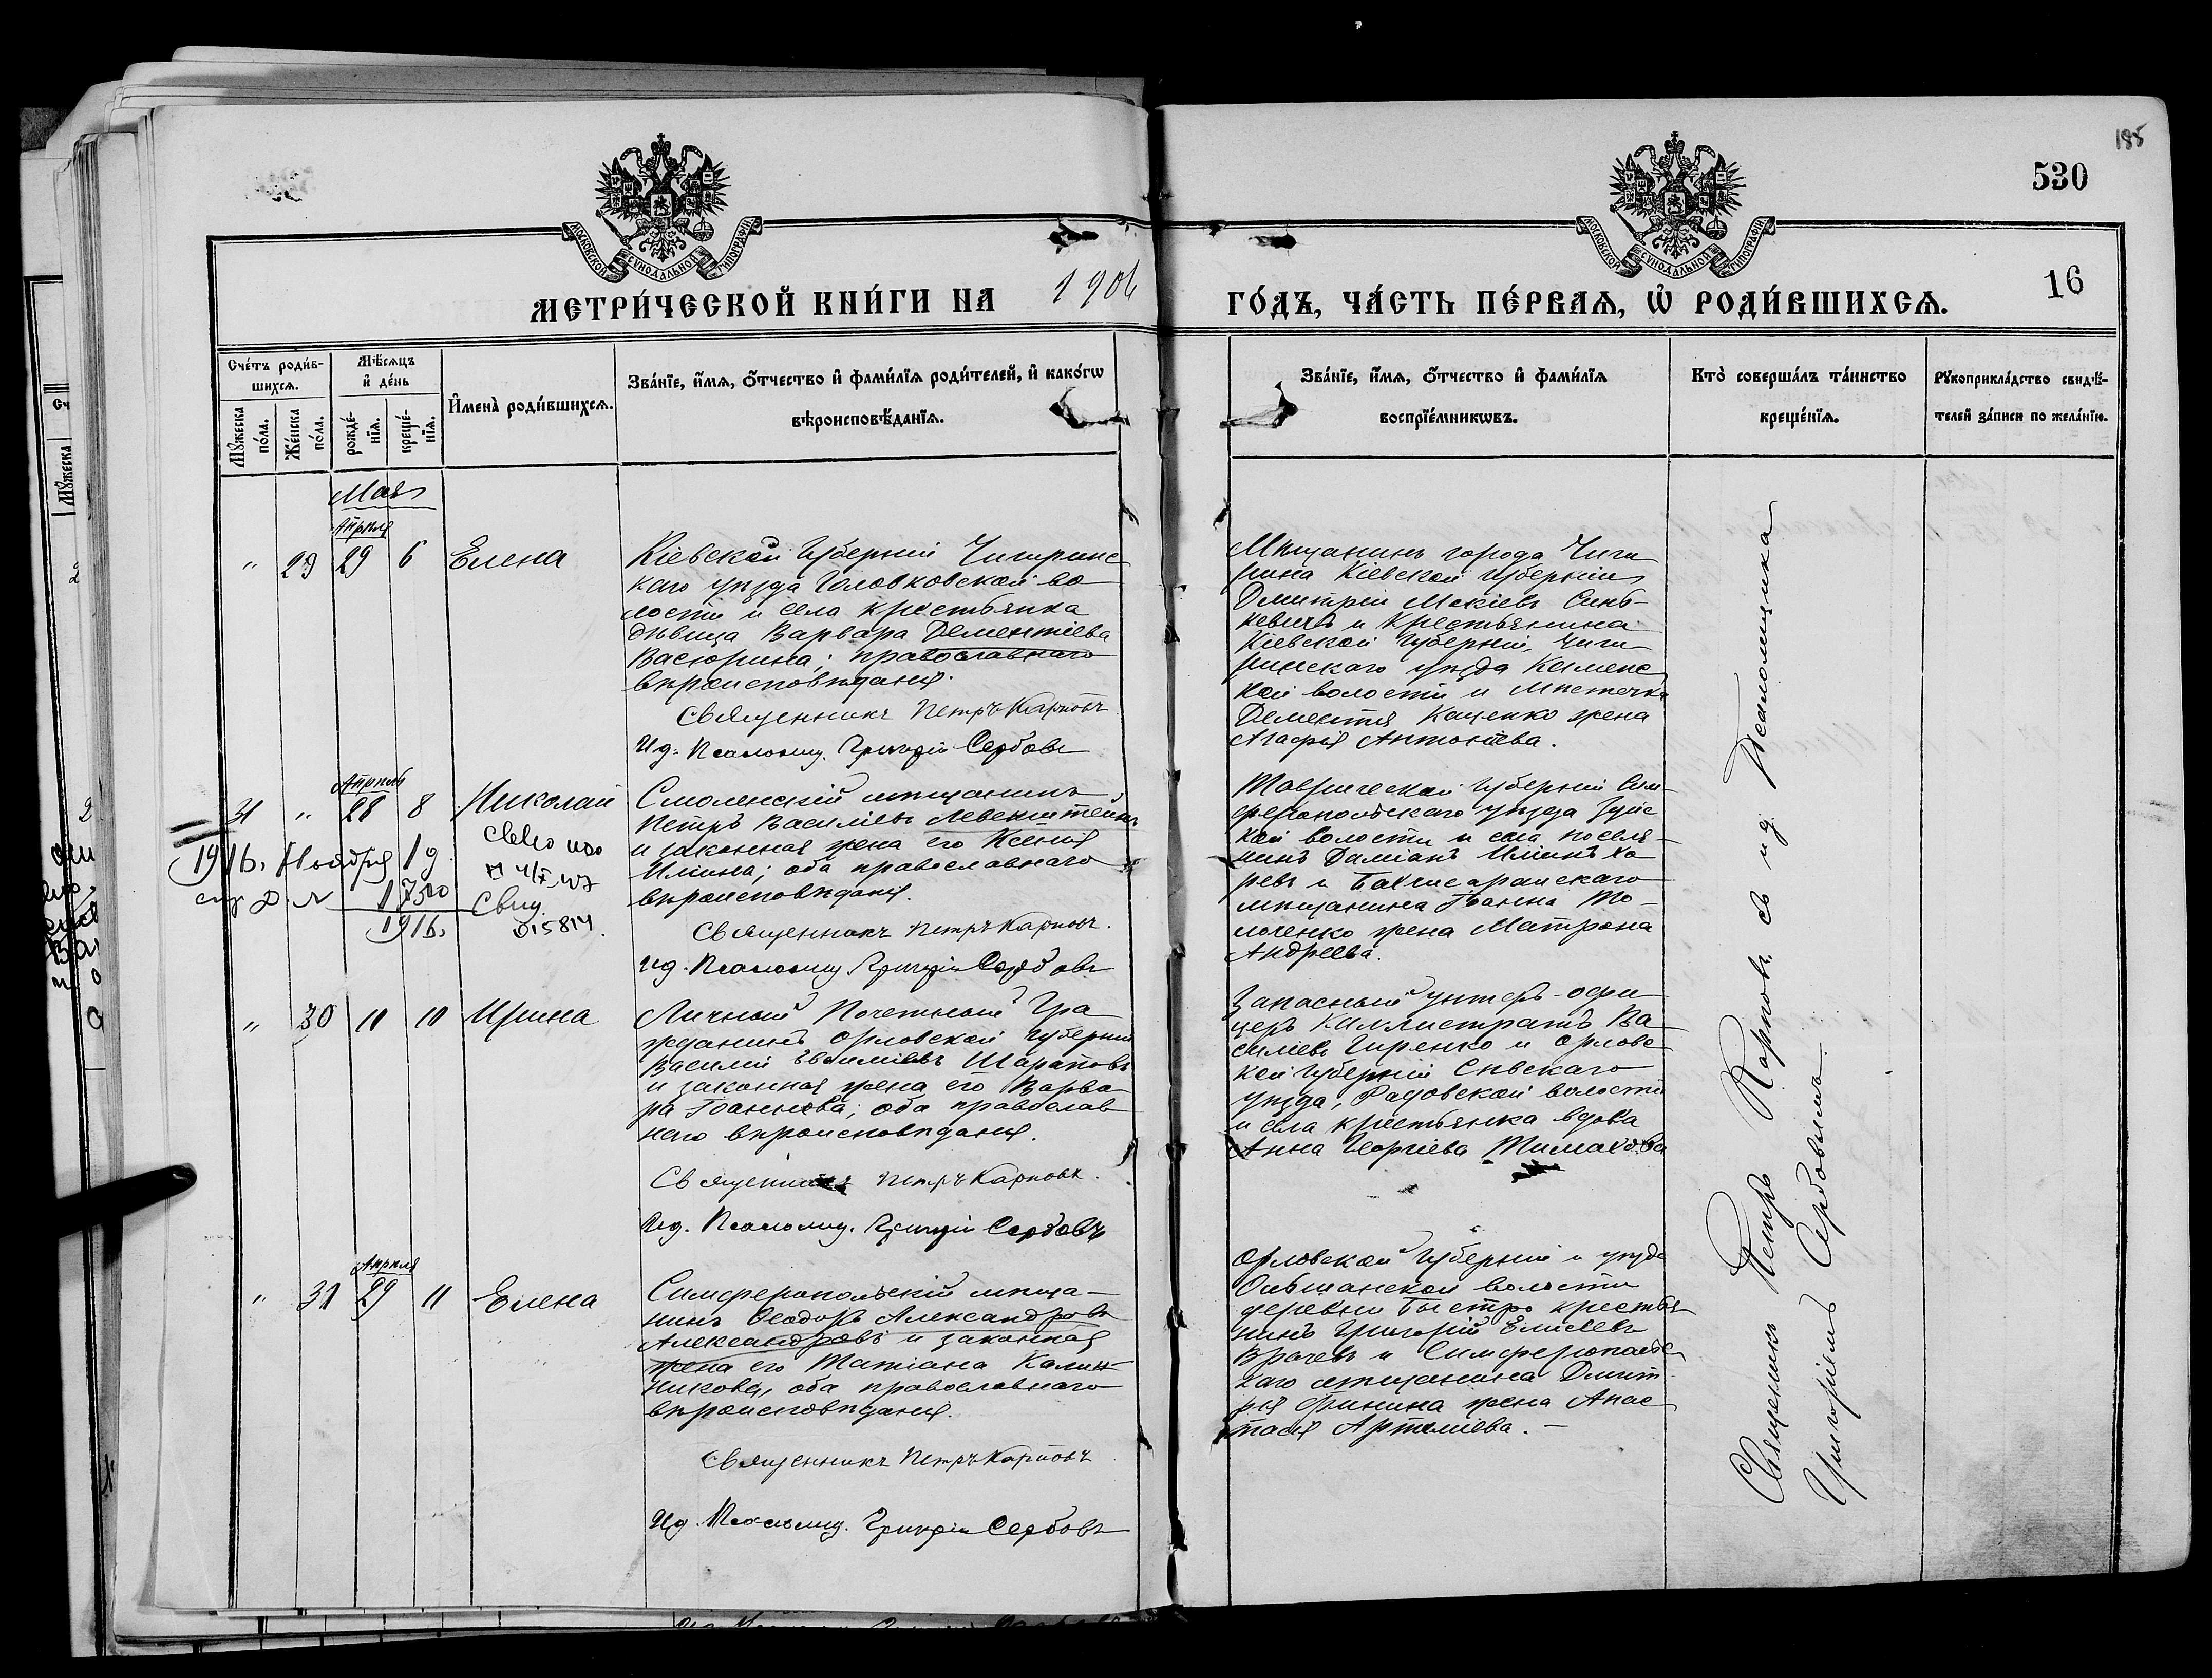 185
530
16
МОСКОВСКОЙ СѴНОДАЛЬНОЙ ТИПОГРАФІИ
МОСКОВСКОЙ СѴНОДАЛЬНОЙ ТИПОГРАФІИ
МЕТРИ́ЧЕСКОЙ КНИ́ГИ НА 1906
ГО́ДЪ, ЧА́СТЬ ПЕ́РВАѦ, Ѡ҆ РОДИ́ВШИХСѦ.
Сче́тъ роди́в-
шихсѧ.
Мꙋ́жеска по́ла.
Же́нска по́ла.
Мѣ́сѧцъ и҆ де́нь
рожде́-нїѧ.
креще́-нїѧ.
И҆мена̀ роди́вшихсѧ.
Зва́нїе, и҆́мѧ, ѻ҆́тчество и҆ фами́лїѧ роди́телей, и҆ како́гѡ
вѣроисповѣ́данїѧ.
Зва́нїе, и҆́мѧ, ѻ҆́тчество и҆ фами́лїѧ
воспрїе́мникѡвъ.
Кто̀ соверша́лъ та́инство
креще́нїѧ.
Рꙋкоприкла́дство свидѣ́-
телей за́писи по жела́нїю.
Май
Апрѣля
" 29 29 6 Елена
Кіевской Губерніи Чигиринс
каго уѣзда Головковской во
лости и села крестьянка
дѣвица Варвара Дементіева
Васюрина; православнаго
вѣроисповѣданія.
Священникъ Петръ Карповъ
И д. Псаломщ. Григорій Сербовъ
Мѣщанинъ города Чиги
рина Кіевской Губерніи
Димитрій Макіевъ Синь-
кевичъ и крестьянина
Кіевской Губерніи, Чиги-
ринскаго уѣзда Каменс
кой волости и мѣстечка
Дементія Каценко жена
Агафія Антоніева.
Апрѣля
31 " 28 8 Николай
Смоленскій мѣщанинъ
Петръ Василіевъ Левенштейнъ
и законная жена его Ксенія
Илиина; оба православнаго
вѣроисповѣданія.
Священникъ Петръ Карповъ.
И д. Псаломщ Григорій Сербовъ
1916. Ноября 19
1916.
Таврической Губерніи Сим-
феропольскаго уѣзда Зуйс
кой волости и села поселя-
нинъ Даміанъ Илиинъ Ха
ревъ и Бахчисарайскаго
мѣщанина Іоанна То-
лоченко жена Матрона
Андреева.
" 30 11 11 Ирина
Личный Почетный Гра
жданинъ Орловской Губерніи
Василій Евѳиміевъ Шараповъ
и законная жена его Варва
ра Іоаннова; оба православ
наго вѣроисповѣданія.
Священникъ Петръ Карповъ.
И д. Псаломщ. Григорій Сербовъ
Запасный унтеръ-офи
церъ Каллистратъ Ва
силіевъ Гиренко и Орловс
кой Губерніи Сѣвскаго
уѣзда, волости
и села крестьянка вдова
Анна Георгіева Тимахова
Апрѣля
" 31 29 11 Елена
Симферопольскій мѣща-
нинъ Ѳеодоръ Александровъ
Александровъ и законная
жена его Татіана Калин-
никова, оба православнаго
вѣроисповѣданія.
Священникъ Петръ Карповъ
И д. Псаломщ. Григорій Сербовъ
Орловской Губерніи и уѣзда
Ольшанской волости
деревни Быстро крестья
нинъ Григорій Елисеевъ
Врачевъ и Симферопольс
каго мѣщанина Димит-
рія Финина жена Анас
тасія Артеміева. -
Священникъ Петръ Карповъ съ и д Псаломщика
Григоріемъ Сербовымъ.